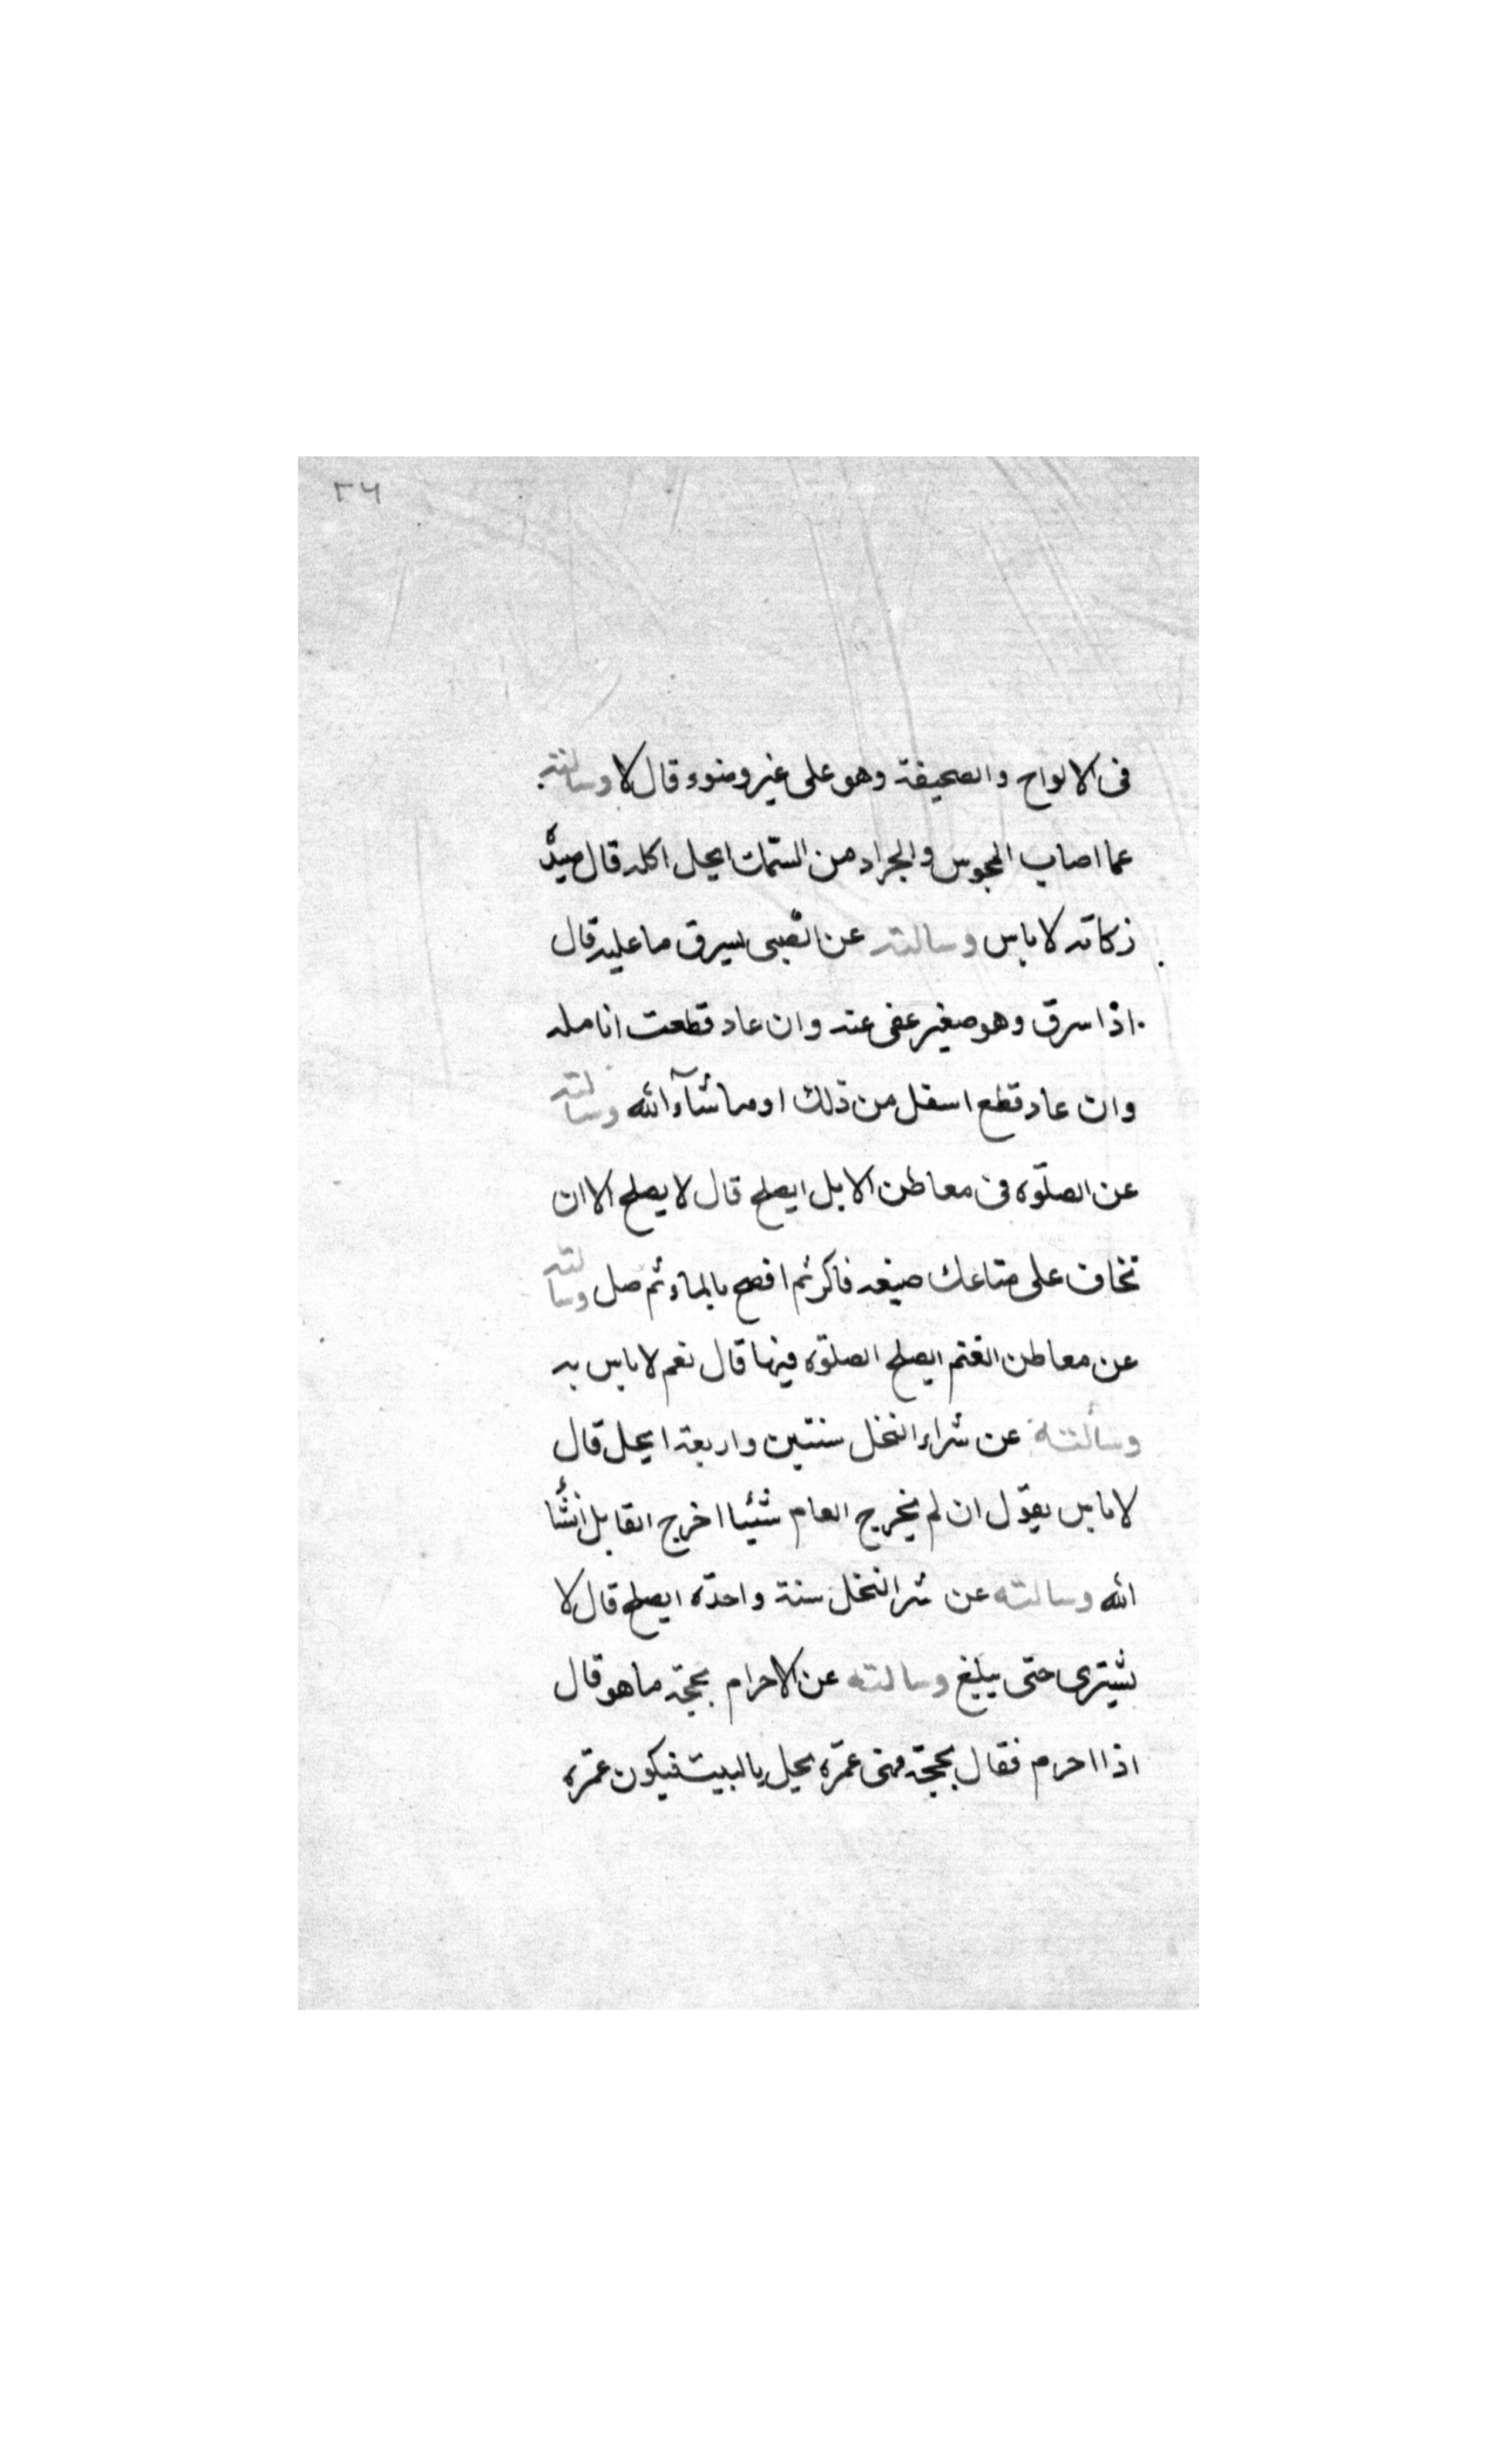 ٢٦
فى الالواح والصحيفة وهو على غير وضوء قال لا وسالته
عما اصاب المجوس والجراد من السّمك ايحل اكله قال صيدُه
زكاته لا باس وسالته عن الصّبى يسرق ما عليه قال
اذا سرق وهو صغير عفى عنه وان عاد قطعت انامله
وان عاد قطع اسفل من ذلك او ما شآء الله وسالته
عن الصلّوة فى معاطن الابل ايصلح قال لا يصلح الا ان
تخاف على متاعك ضيعه فاكر ثم افضح بالماء ثم صل وسالته
عن معاطن الغنم ايصلح الصلوة فيها قال نعم لا باس به
وسألته عن شراء النخل سنتين واربعة ايحل قال
لا باس يقول ان لم يخرج العام شئيا اخرج القابل انشأ
الله وسالته عن شرا النخل سنة واحدة ايصلح قال لا
يشترى حتى يبلغ وسالته عن الاحرام بحجّة ما هو قال
اذا احرم فقال بحجّة فهى عمرّه يحل بالبيت فيكون عمرّه